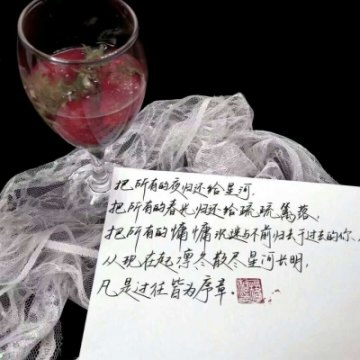 把所有的夜归还给星河,
把所有的春光归还给琉琉篱落,
把所有的慵慵沉迷与不前归去于过去的你、
从现在起,凛冬散尽星河长明,
凡是过往皆为序章。